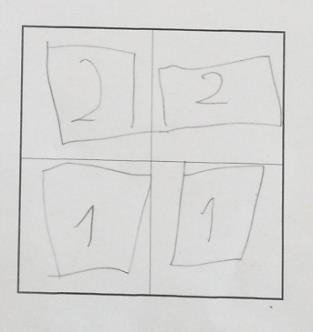 2 2
1 1